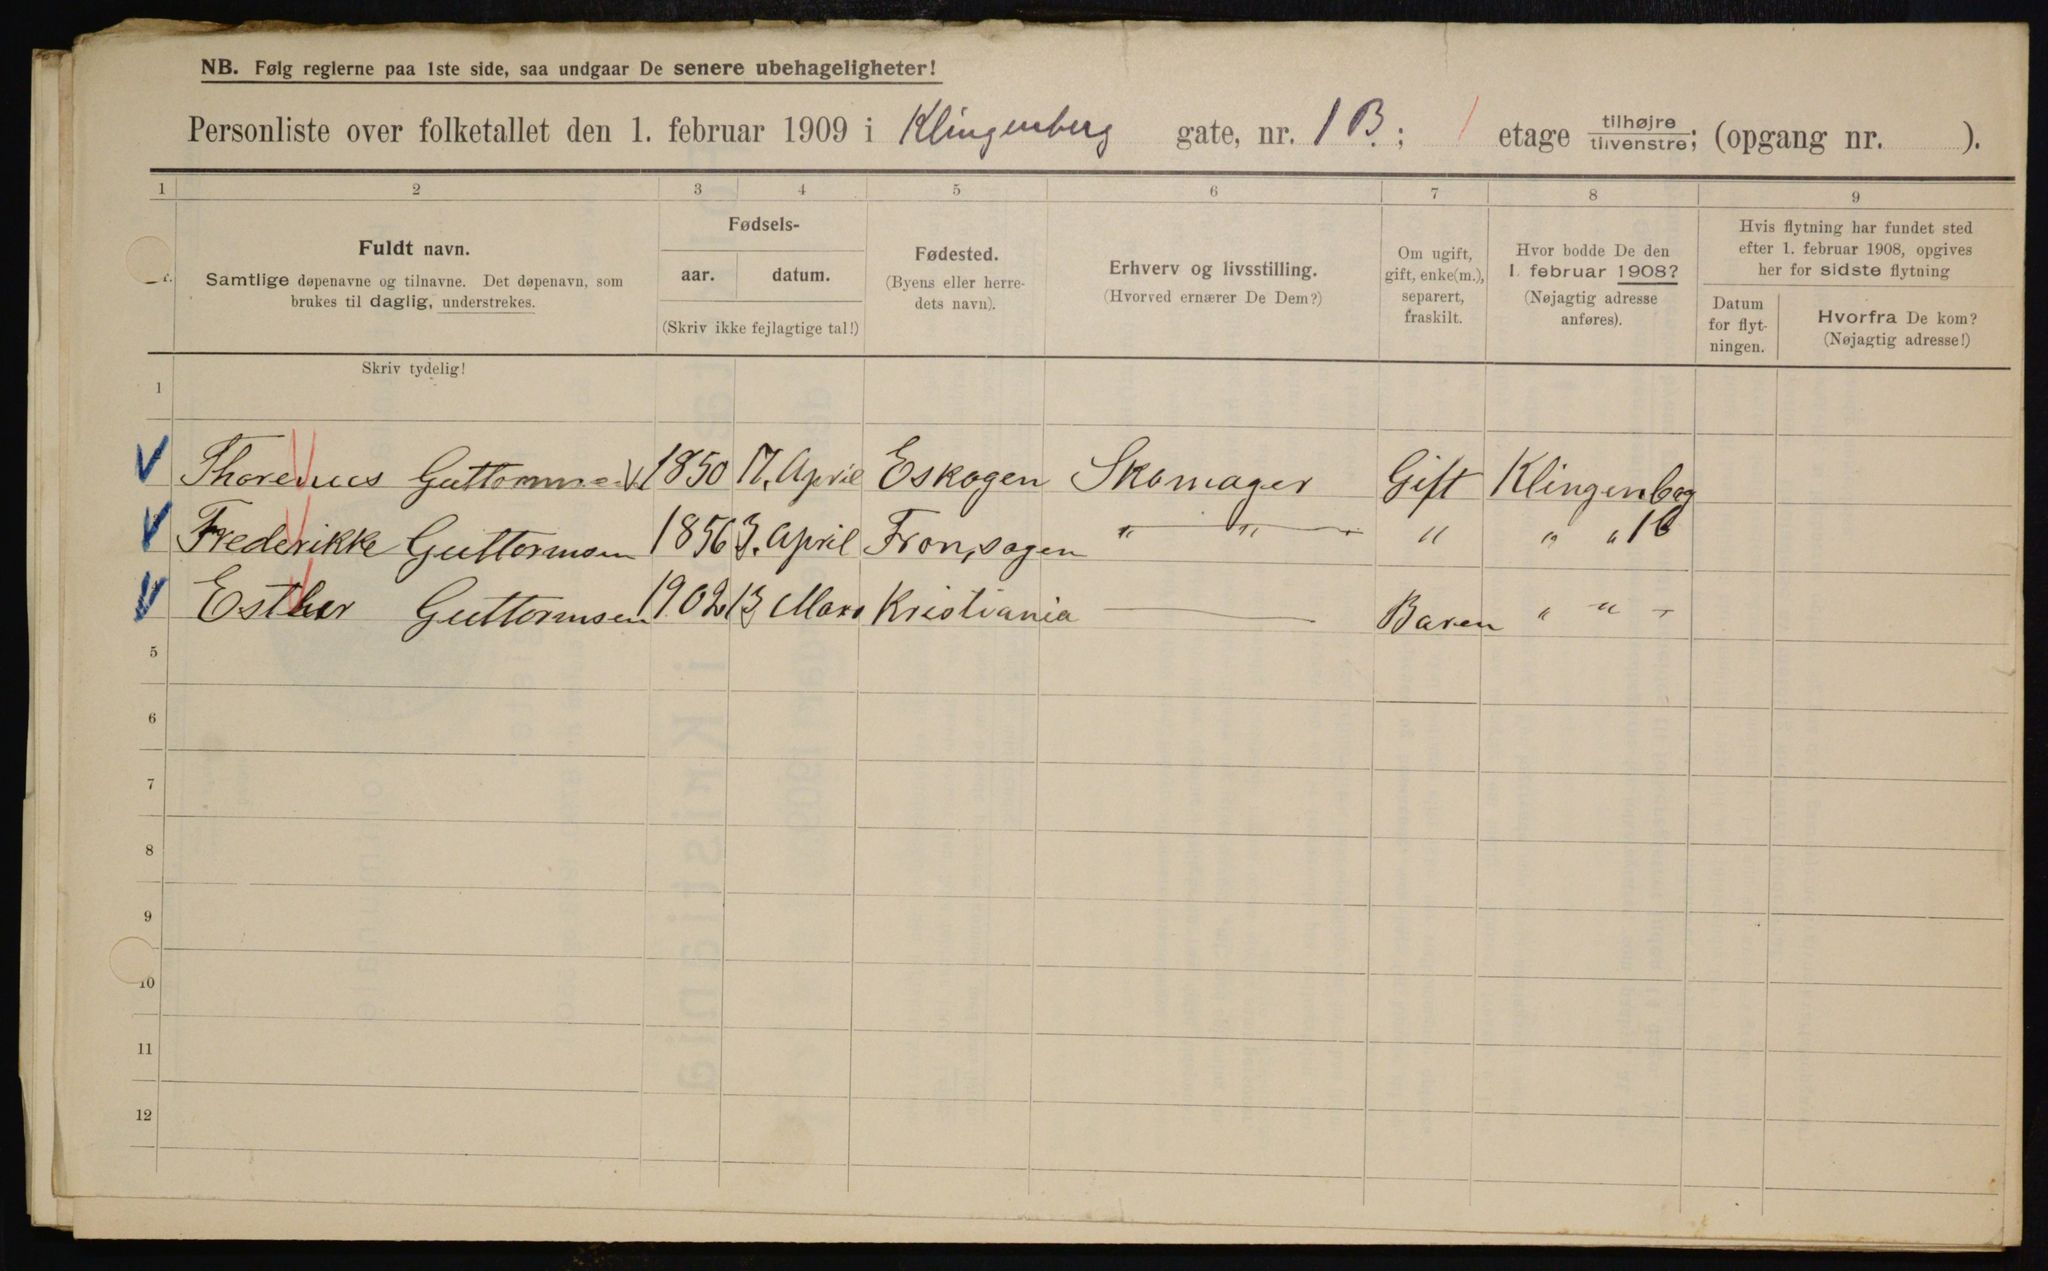 NB. Følg reglerne paa 1ste side, saa undgaar De senere ubehageligheter!
Personliste over folketallet den 1. februar 1909 i Klingenberg gate, nr. 1 B.; 1 etage tilhøjre tilvenstre; (opgang nr. ).
1 2 3 4 5 6 7 8 9
Fuldt navn.
Samtlige døpenavne og tilnavne. Det døpenavn, som
brukes til daglig, understrekes.
Skriv tydelig!
Fødsels-
aar. datum.
(Skriv ikke fejlagtige tal!)
Fødested.
(Byens eller herre-
dets navn).
Erhverv og livsstilling.
(Hvorved ernærer De Dem?)
Om ugift,
gift, enke(m.),
separert,
fraskilt.
Hvor bodde De den
1. februar 1908?
(Nøjagtig adresse
anføres).
Hvis flytning har fundet sted
efter 1. februar 1908, opgives
her for sidste flytning
Datum
for flyt-
ningen.
Hvorfra De kom?
(Nøjagtig adresse!)
1
Guttormsen 1850 17. April Eskogen Skomager Gift Klingenberg
Frederikke Guttormsen 1856 3. April " " " " "
Esther Guttormsen 1902 13 Mars Kristiania Baren " "
5
6
7
8
9
10
11
12